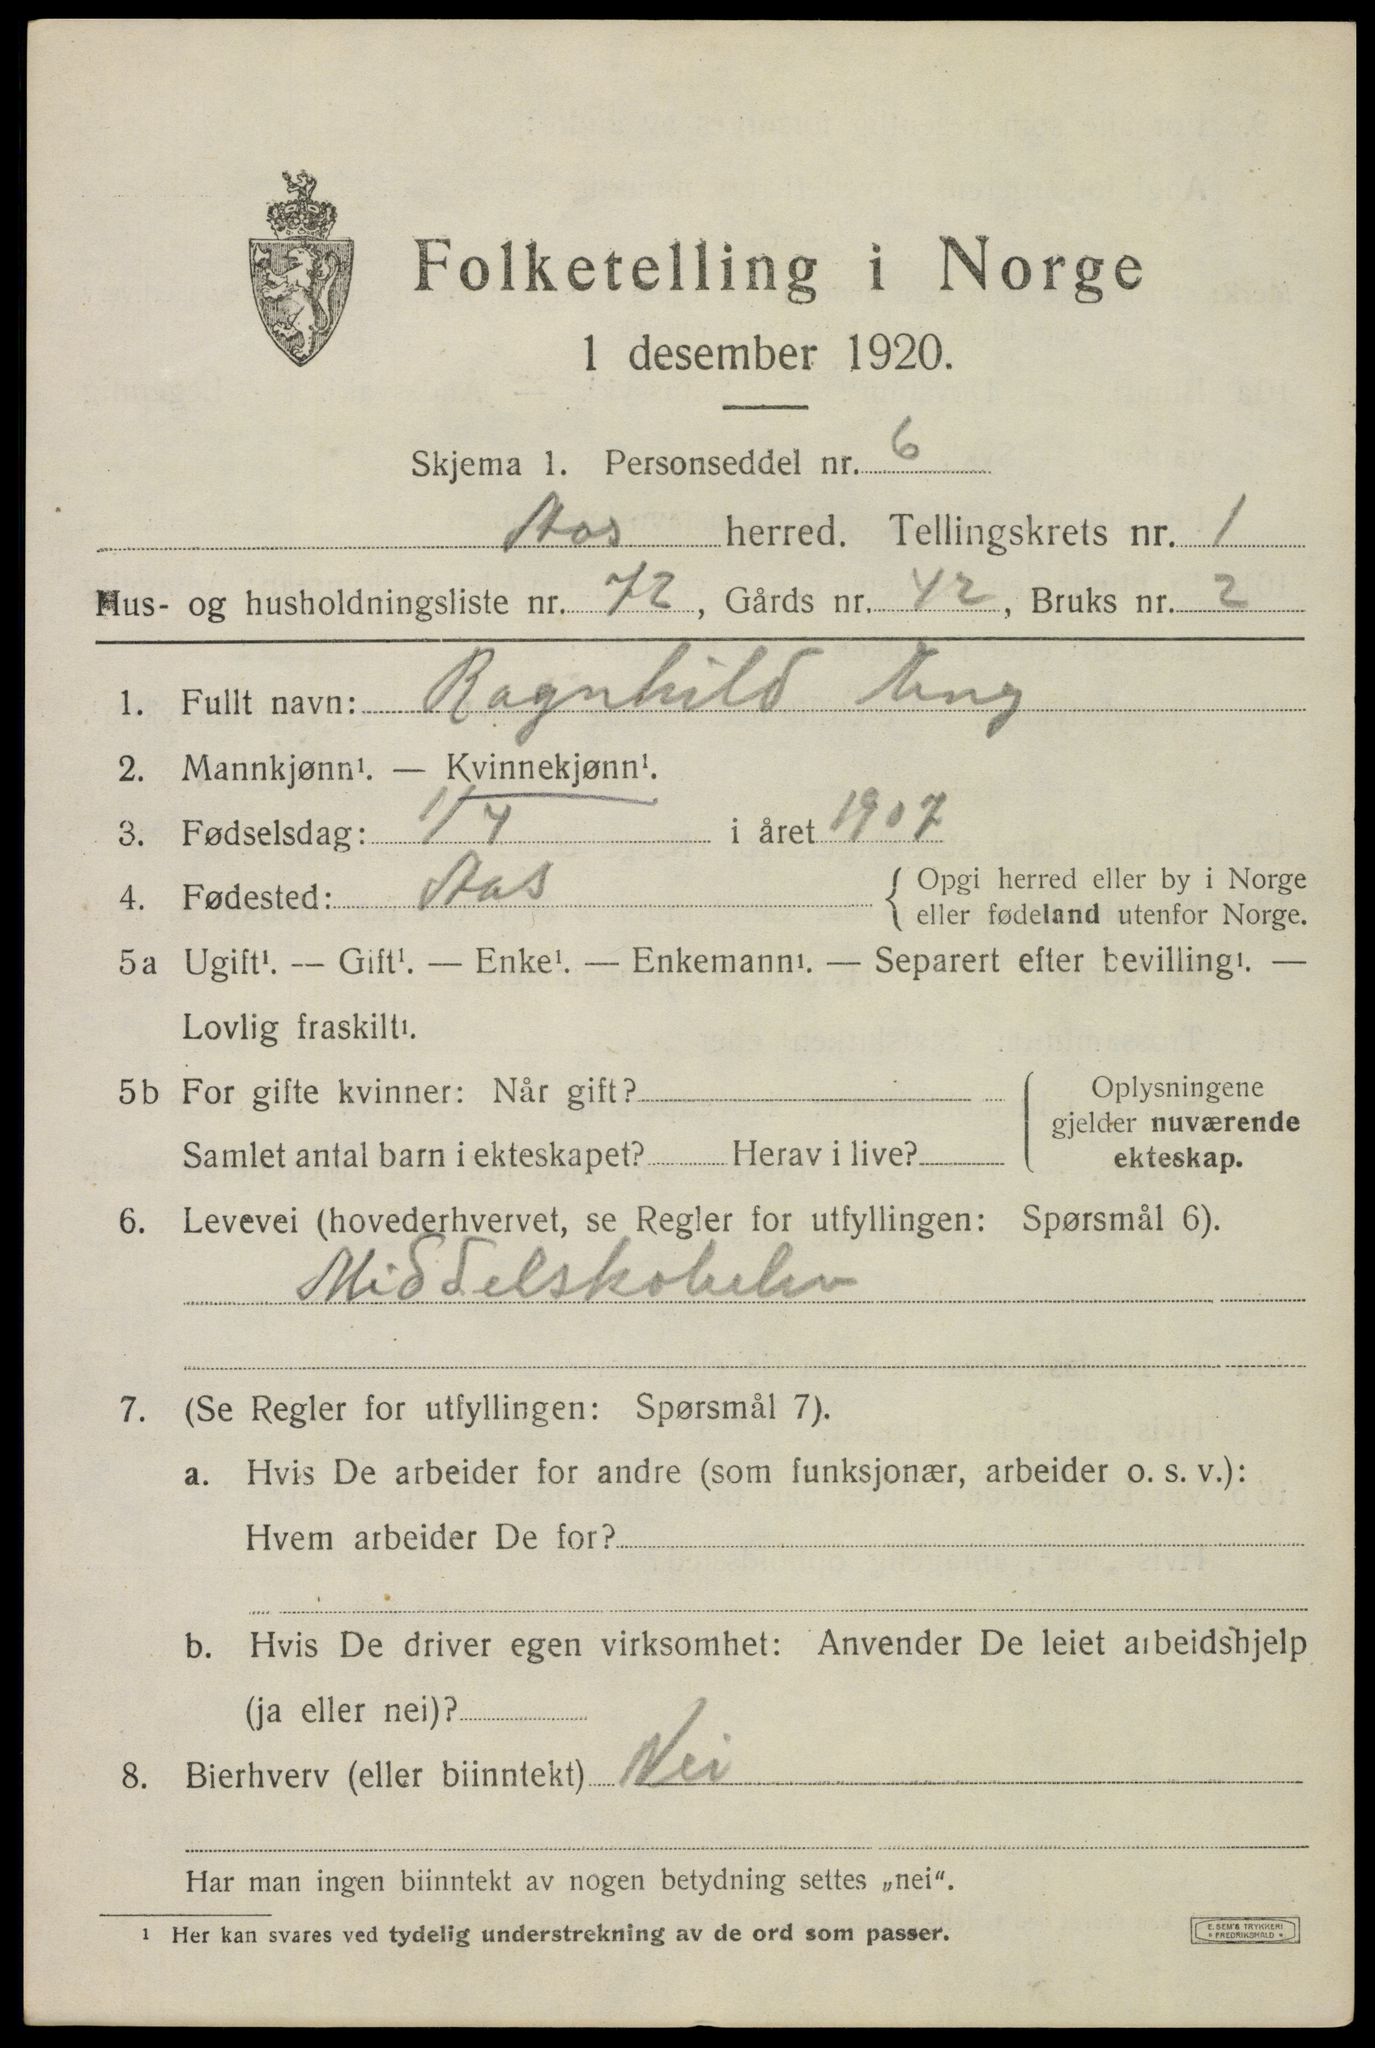 Folketelling i Norge
1 desember 1920.
Skjema 1. Personseddel nr. 6
Aas herred. Tellingskrets nr. 1
Hus- og husholdningsliste nr. 72, Gårds nr. 42, Bruks nr. 2
1. Fullt navn: Ragnhild Eng
2. Mannkjønn¹. — Kvinnekjønn¹.
3. Fødselsdag: 11/4 i året 1907
4. Fødested: Aas { Opgi herred eller by i Norge
eller fødeland utenfor Norge.
5a Ugift¹. — Gift¹. — Enke¹. — Enkemann¹. — Separert efter bevilling¹. —
Lovlig fraskilt¹.
5b For gifte kvinner: Når gift?
Samlet antal barn i ekteskapet? Herav i live?
Oplysningene
gjelder nuværende
ekteskap.
6. Levevei (hovederhvervet, se Regler for utfyllingen: Spørsmål 6).
Middelskoleelev
7. (Se Regler for utfyllingen: Spørsmål 7).
a. Hvis De arbeider for andre (som funksjonær, arbeider o. s. v.):
Hvem arbeider De for?
b. Hvis De driver egen virksomhet: Anvender De leiet arbeidshjelp
(ja eller nei)?
8. Bierhverv (eller biinntekt) Nei
Har man ingen biinntekt av nogen betydning settes „nei“.
¹ Her kan svares ved tydelig understrekning av de ord som passer.
E. SEM'S TRYKKERI
* FREDRIKSHALD *